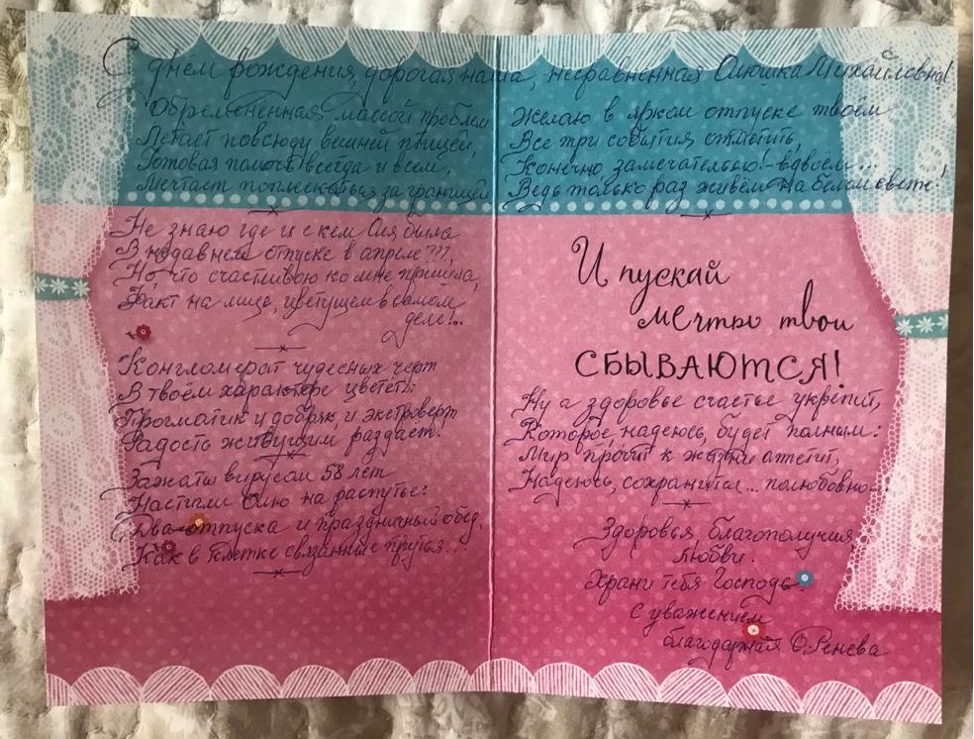 С днем рождения, дорогая наша, несравненная Олюшка Михайловна!
Обремененная массой проблем
Летает повсюду вешней птицей,
Готовая помочь всегда и всем,
Мечтает поплескаться за границей
Не знаю где и с кем Оля была
В недавнем отпуске в апреле???,
Но, что счастливою ко мне пришла,
Факт на лице, цветущем в самом
деле!..
Конгломерат чудесных черт
В твоём характере цветёт:
Прогматик и добряк и экстраверт
Радость живущим раздаёт.
Зажаты вирусом 58 лет
Настигли Олю на распутье:
Два отпуска и праздничный обед,
Как в клетке связанные прутья...
Желаю в ярком отпуске твоём
Все три события отметить,
Конечно, замечательно! - вдвоём...
Ведь только раз живём на белом свете!
И пускай
мечты твои
СБЫВАЮТСЯ!
Ну а здоровье счастье укрепит,
Которое, надеюсь, будет полным:
Мир к жизни
Надеюсь, сохранится... полюбовно...
Здоровья, благополучия,
любви.
Храни тебя Господь.
С уважением
благодарная О. Ренёва